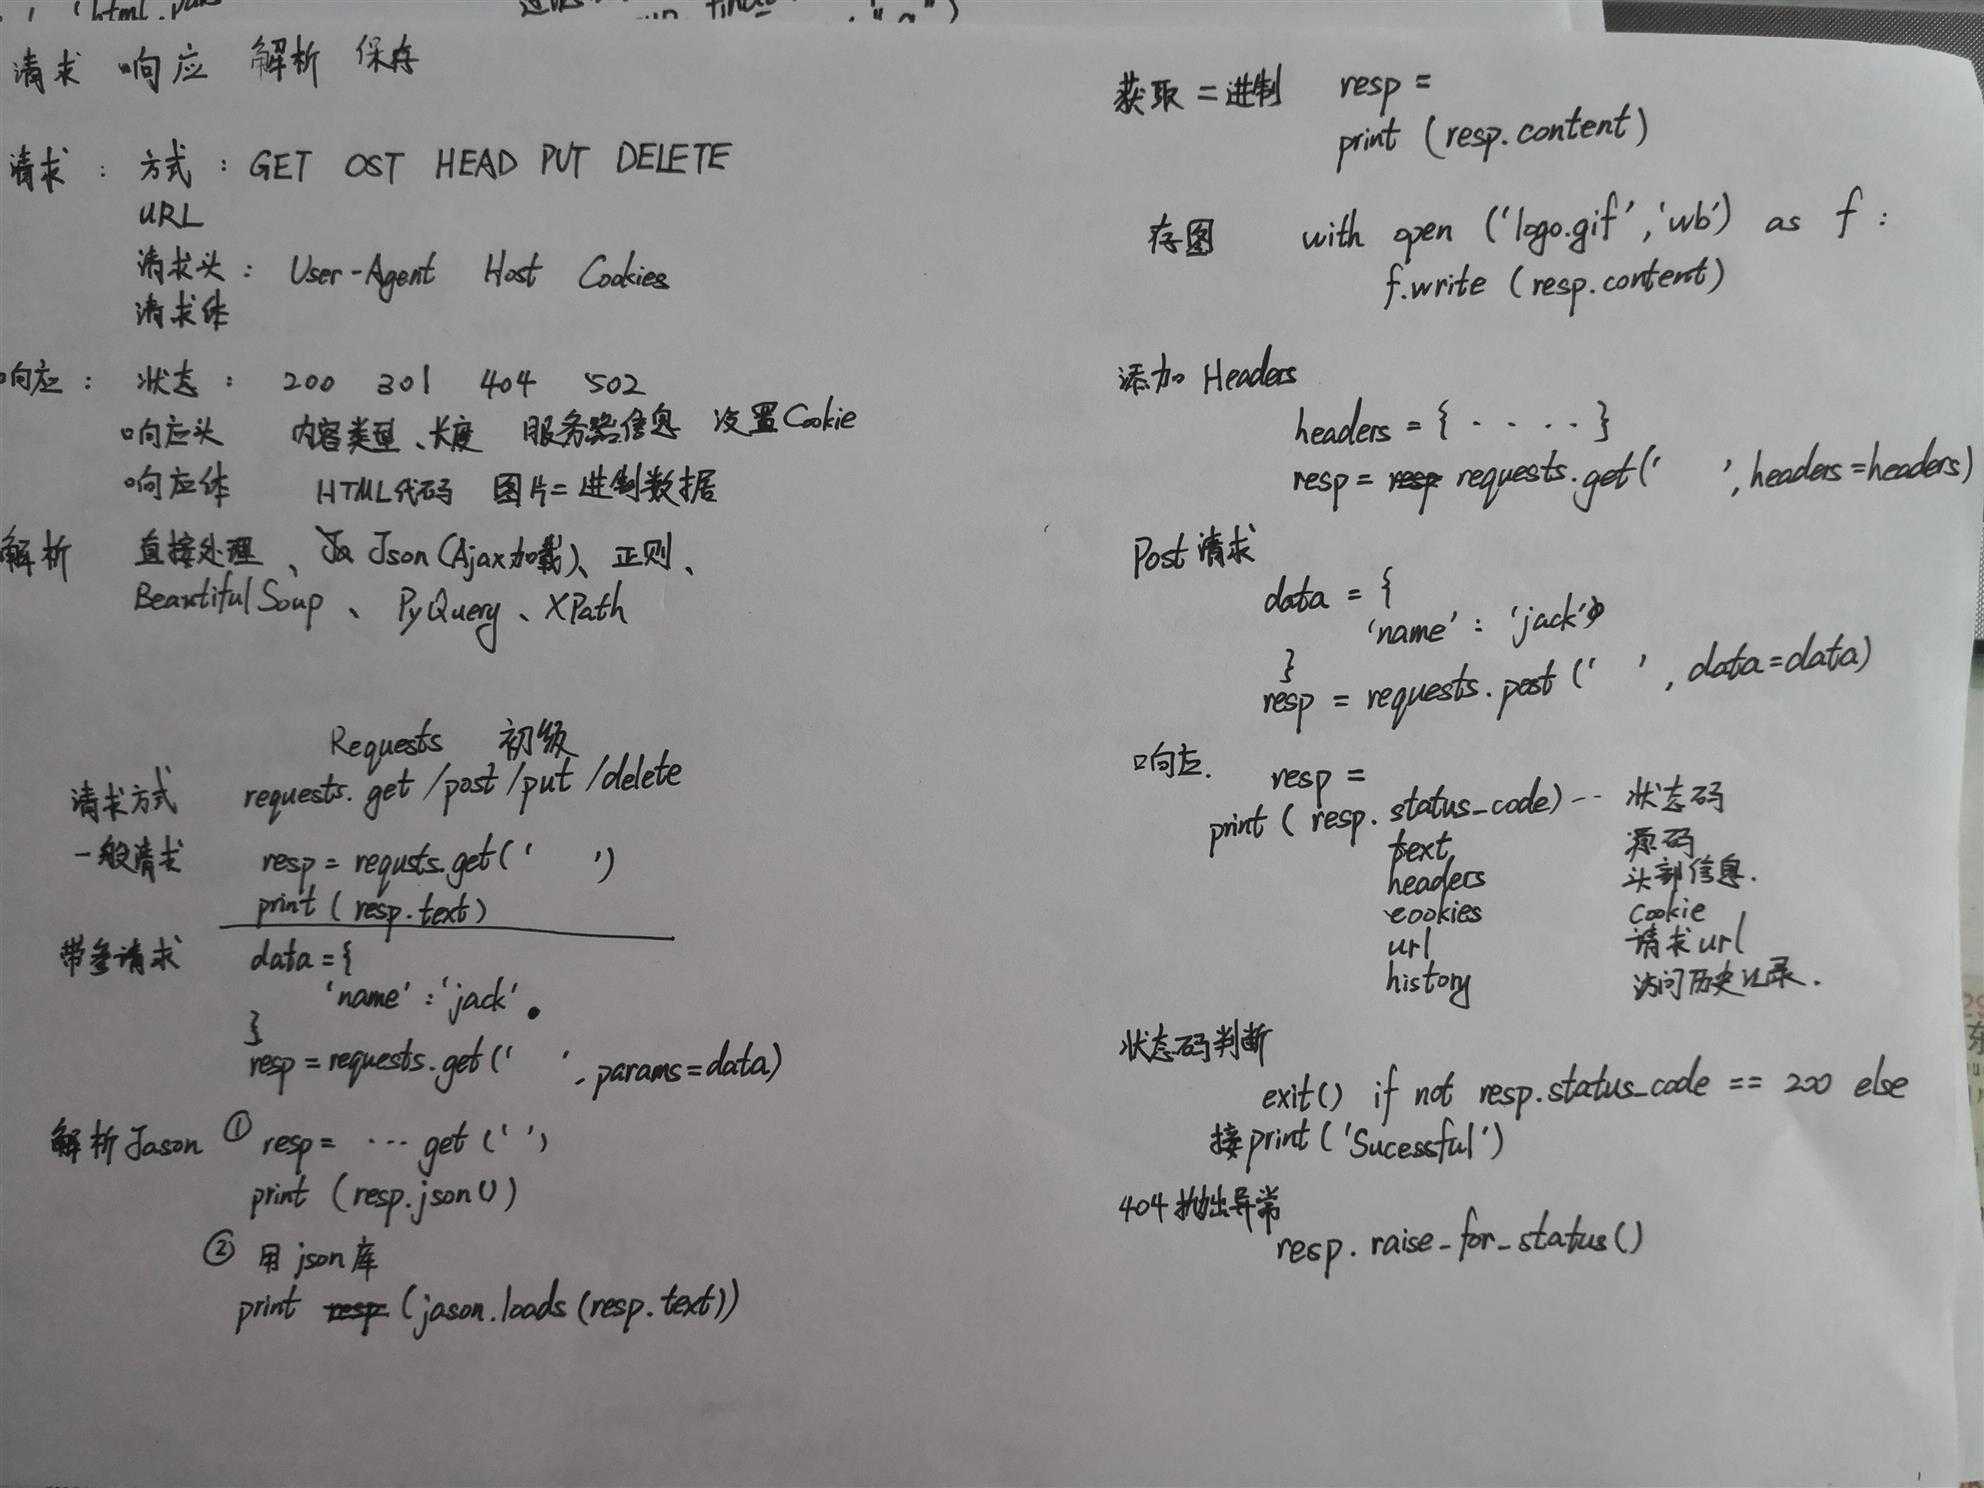 请求 响应 解析 保存
请求 : 方式 : GET OST HEAD PUT DELETE
URL
请求头 : User-Agent Host Cookies
请求体
响应 : 状态 : 200 301 404 502
响应头 内容类型、长度 服务器信息 设置Cookie
响应体 HTML代码 图片二进制数据
解析 直接处理、Json(Ajax加载)、正则、
BeautifulSoup、PyQuery、XPath
Requests 初级
请求方式 requests.get/post/put/delete
一般请求 resp = requsts.get(' ')
print(resp.text)
带参请求 data={
'name':'jack'.
}
resp=requests.get(' ',params=data)
解析Jason ① resp= ...get(' ')
print (resp.json())
② 用json库
print (jason.loads(resp.text))
获取二进制 resp =
print (resp.content)
存图 with open ('logo.gif','wb') as f :
f.write (resp.content)
添加 Headers
headers = { . . . . }
resp = requests.get(' ',headers=headers)
Post请求
data = {
'name' : 'jack'
}
resp = requests.post (' ', data=data)
响应. resp =
print ( resp.status_code) -- 状态码
text 源码
headers 头部信息.
cookies Cookie
url 请求url
history 访问历史记录.
状态码判断
exit() if not resp.status_code == 200 else
接print('Sucessful')
404抛出异常
resp.raise-for-status()